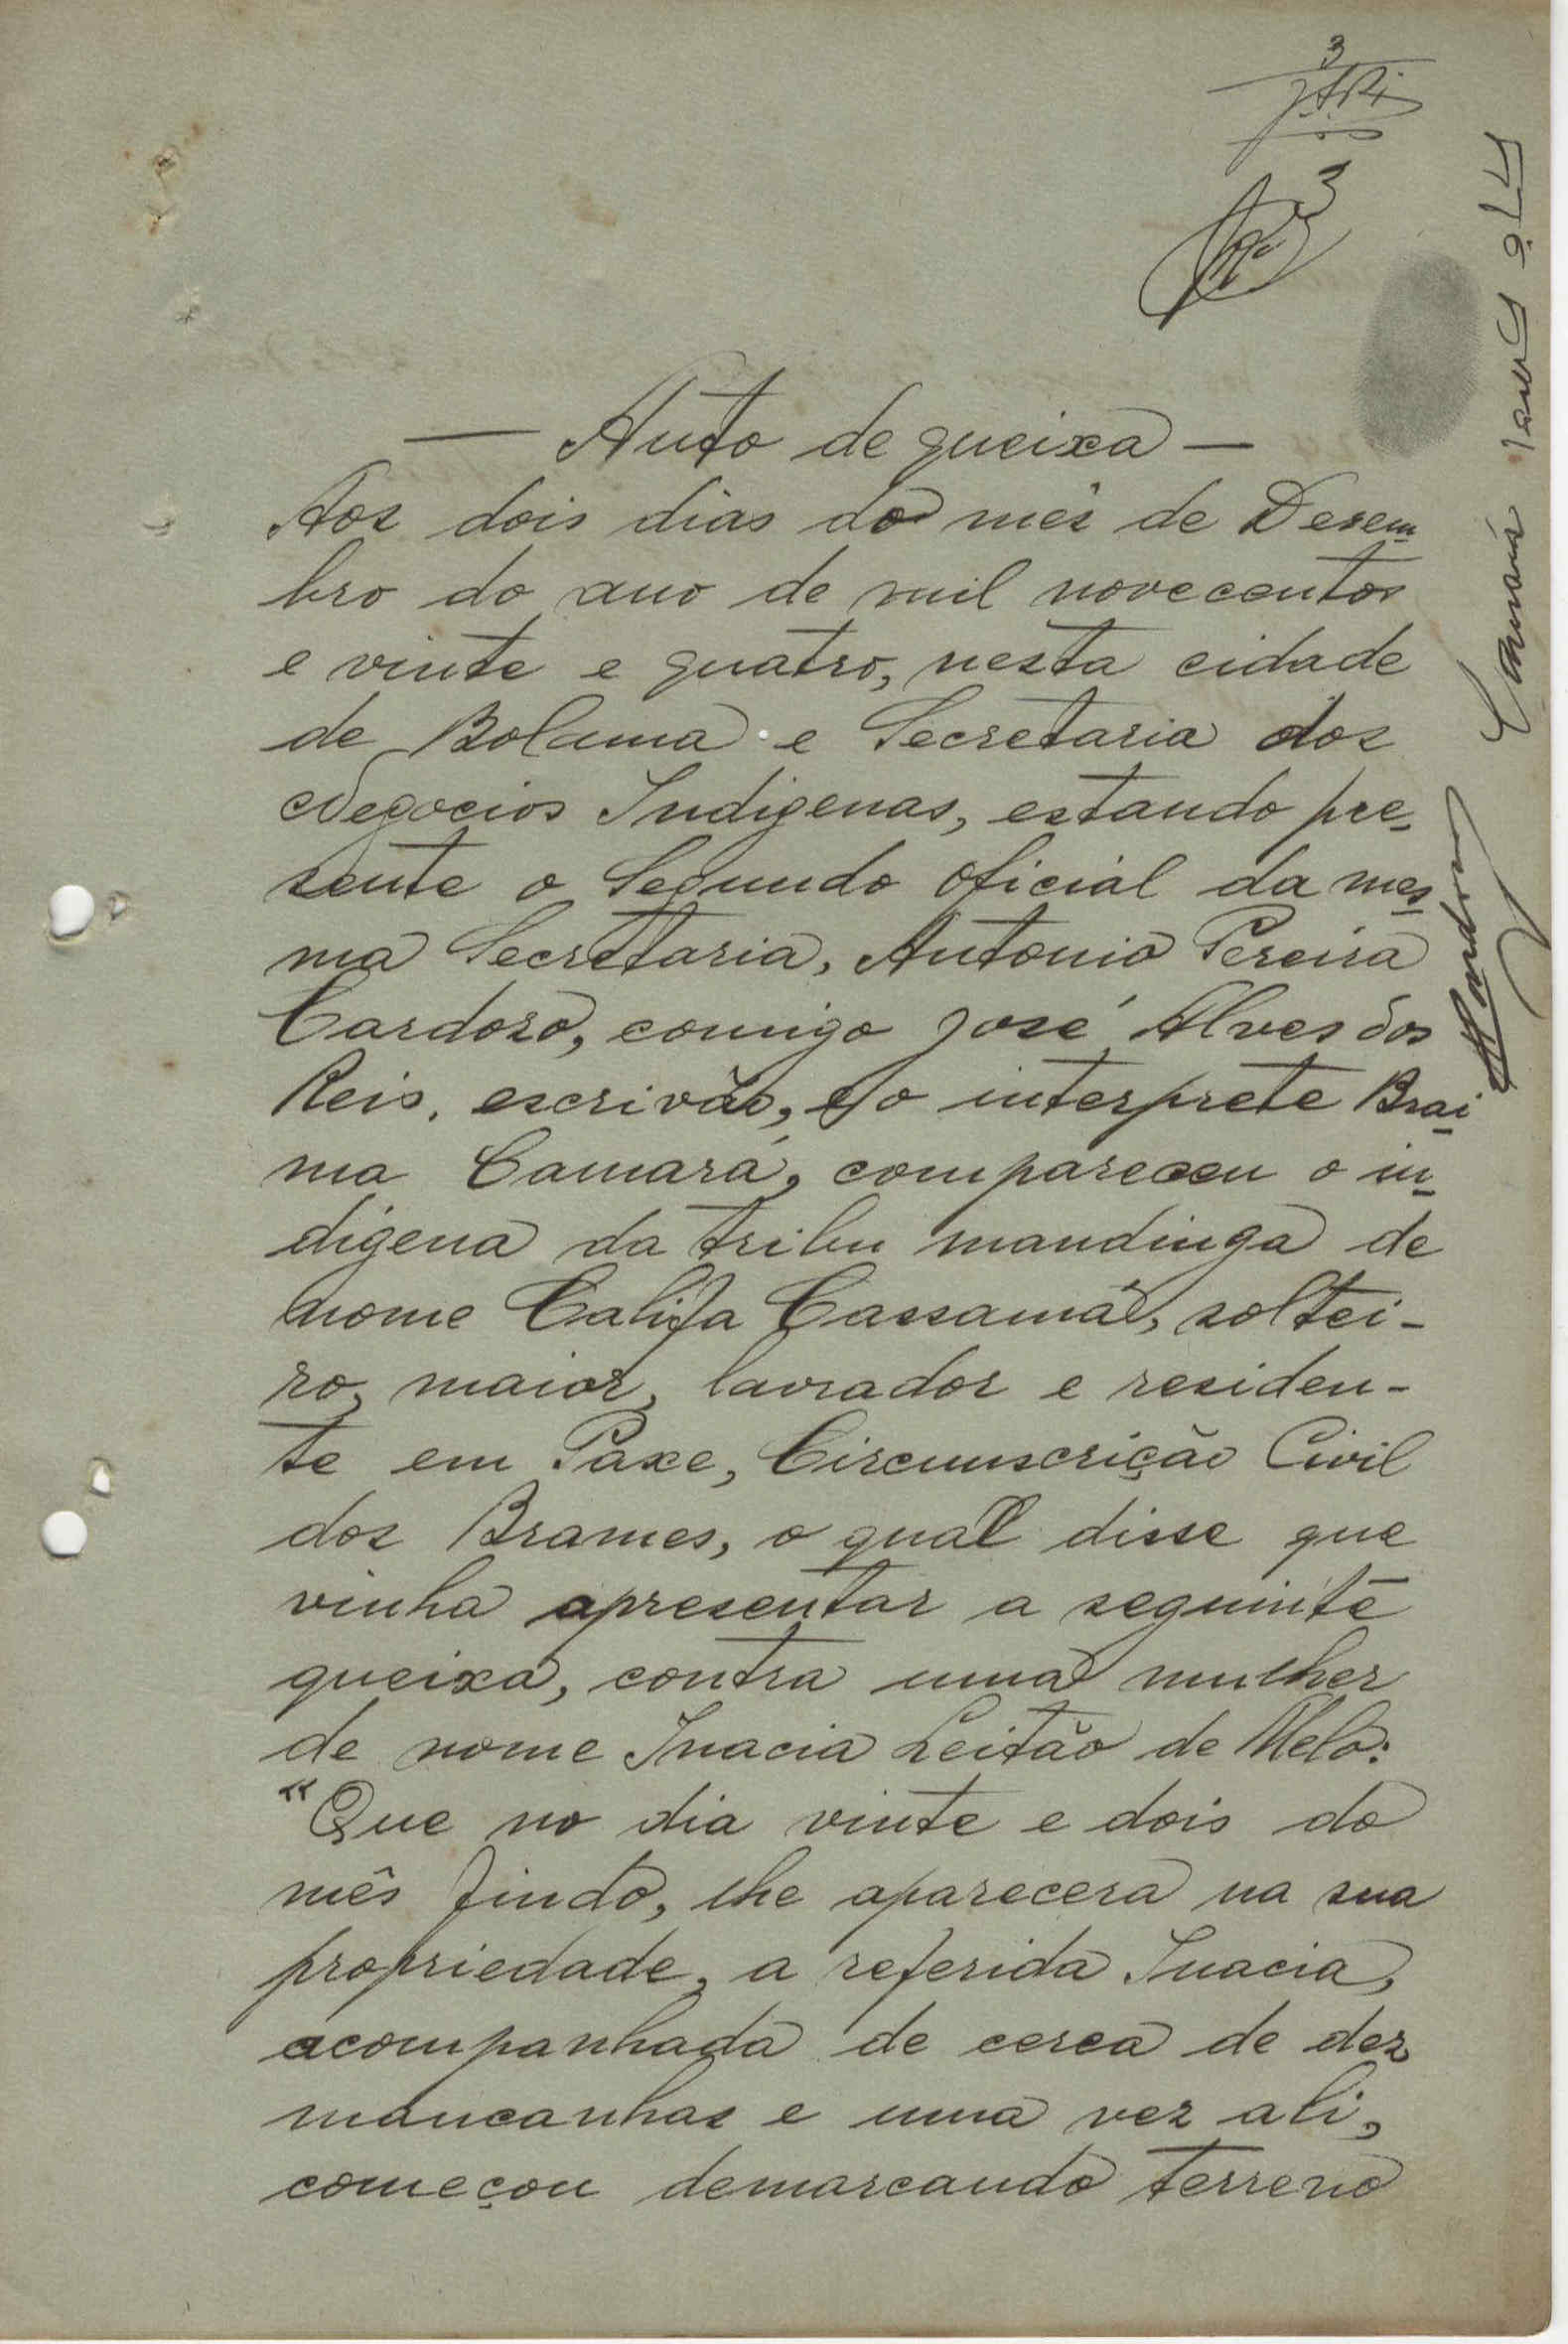 3
3
— Auto de queixa —
Aos dois dias do mês de Desem
bro do ano de mil novecentos
e vinte e quatro, nesta cidade
de Bolama e Secretaria dos
Negocios Indigenas, estando pre-
sente o Segundo oficial da mes-
ma Secretaria, Antonio Pereira
Cardoso, comigo José Alves dos
Reis, escrivão, e o interprete Brai
ma Camará, compareceu o in-
digena da tribu mandinga de
nome Califa Cassamá, soltei-
ro, maior, lavrador e residen-
te em Paxe, Circunscrição Civil
dos Brames, o qual disse que
vinha apresentar a seguinte
queixa, contra uma mulher
de nome Inacia Leitão de Melo:
"Que no dia vinte e dois do
mês findo, lhe aparecera na sua
propriedade, a referida Inacia,
acompanhada de cerca de dez
mancanhas e uma vez ali,
começou demarcando terreno